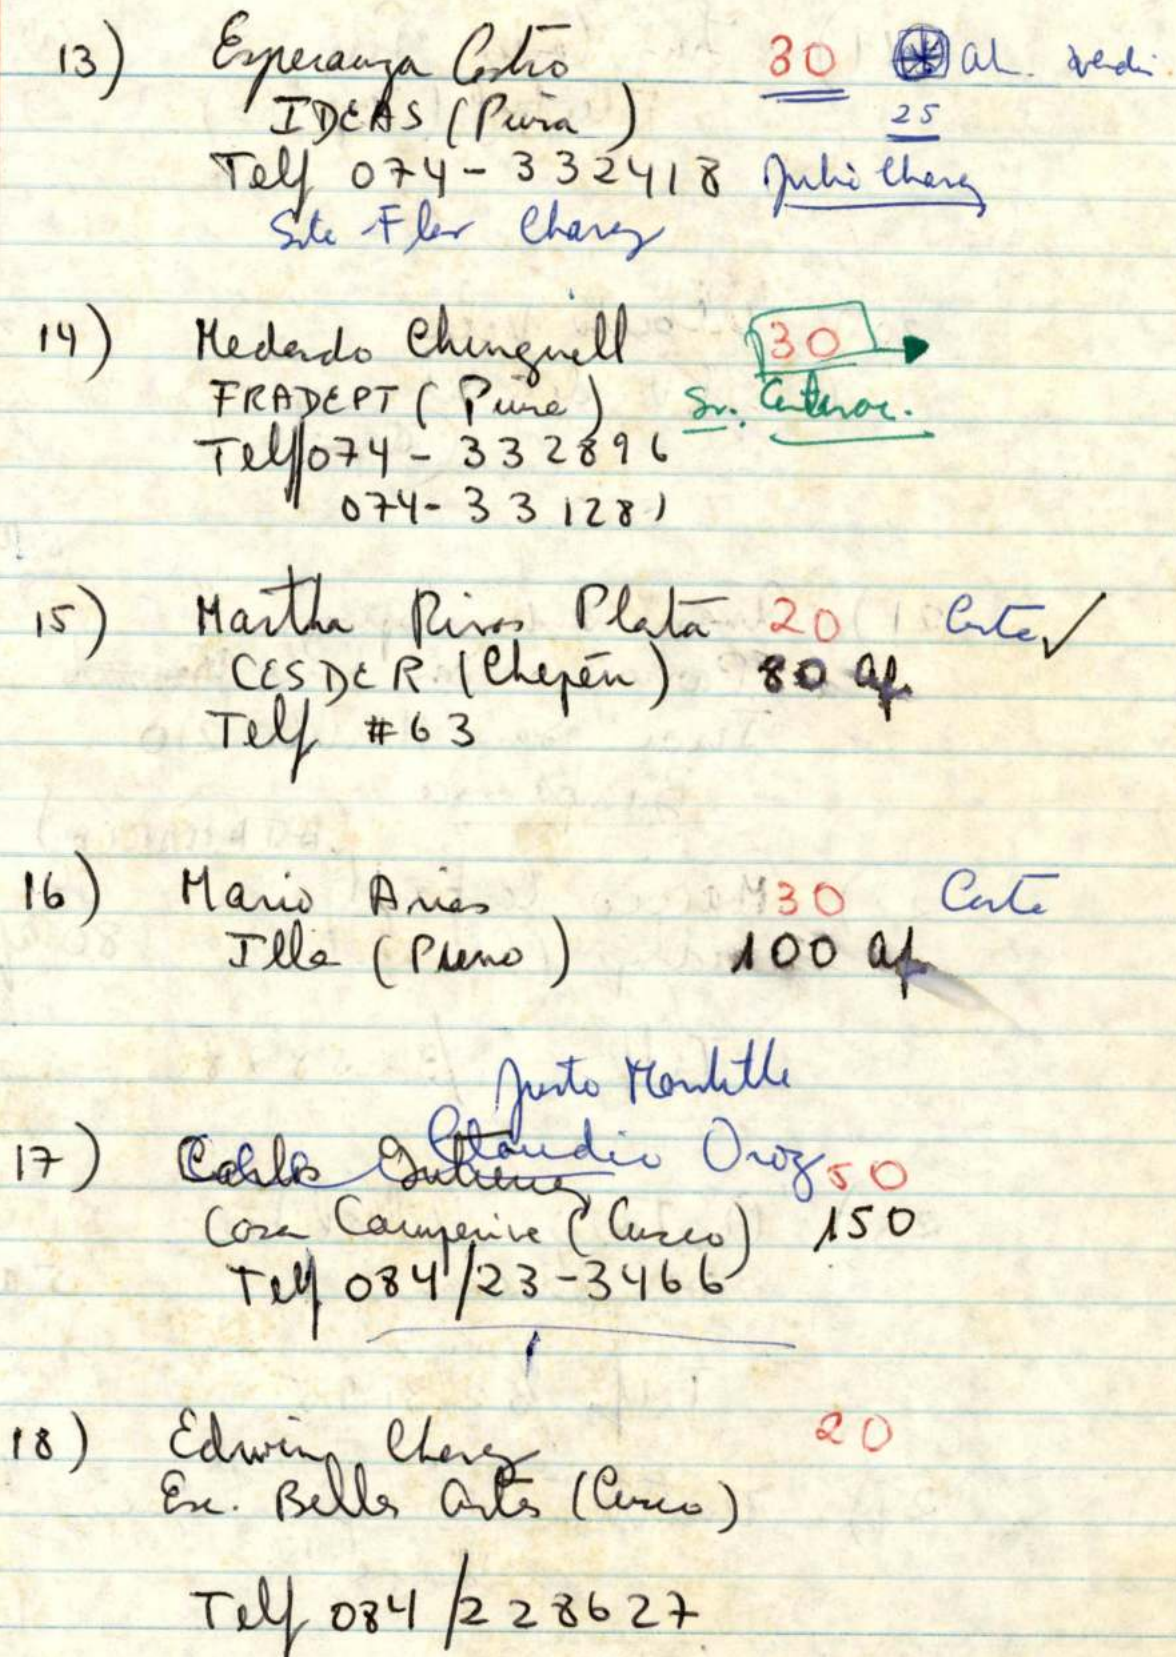 13) Esperanza Castro 30 al.
IDEAS (Piura) 25
Telf 074-332418 Julio Chavez
Srta Flor Chavez
14) Medardo Chinguell 30
FRADEPT (Piura) Sr.
Telf 074-332896
074-331281
15) Martha Rivas Plata 20 Carta ✓
CESDER (Chepén) 80 af.
Telf #63
16) Mario Arias 30 Carta
Illa (Puno) 100 af
Justo
Claudio Oroz
17) Carlos Gutierrez 50
Casa Campesina (Cusco) 150
Telf 084/23-3466
18) Edwin Chavez 20
Esc. Bellas Artes (Cusco)
Telf 084/228627